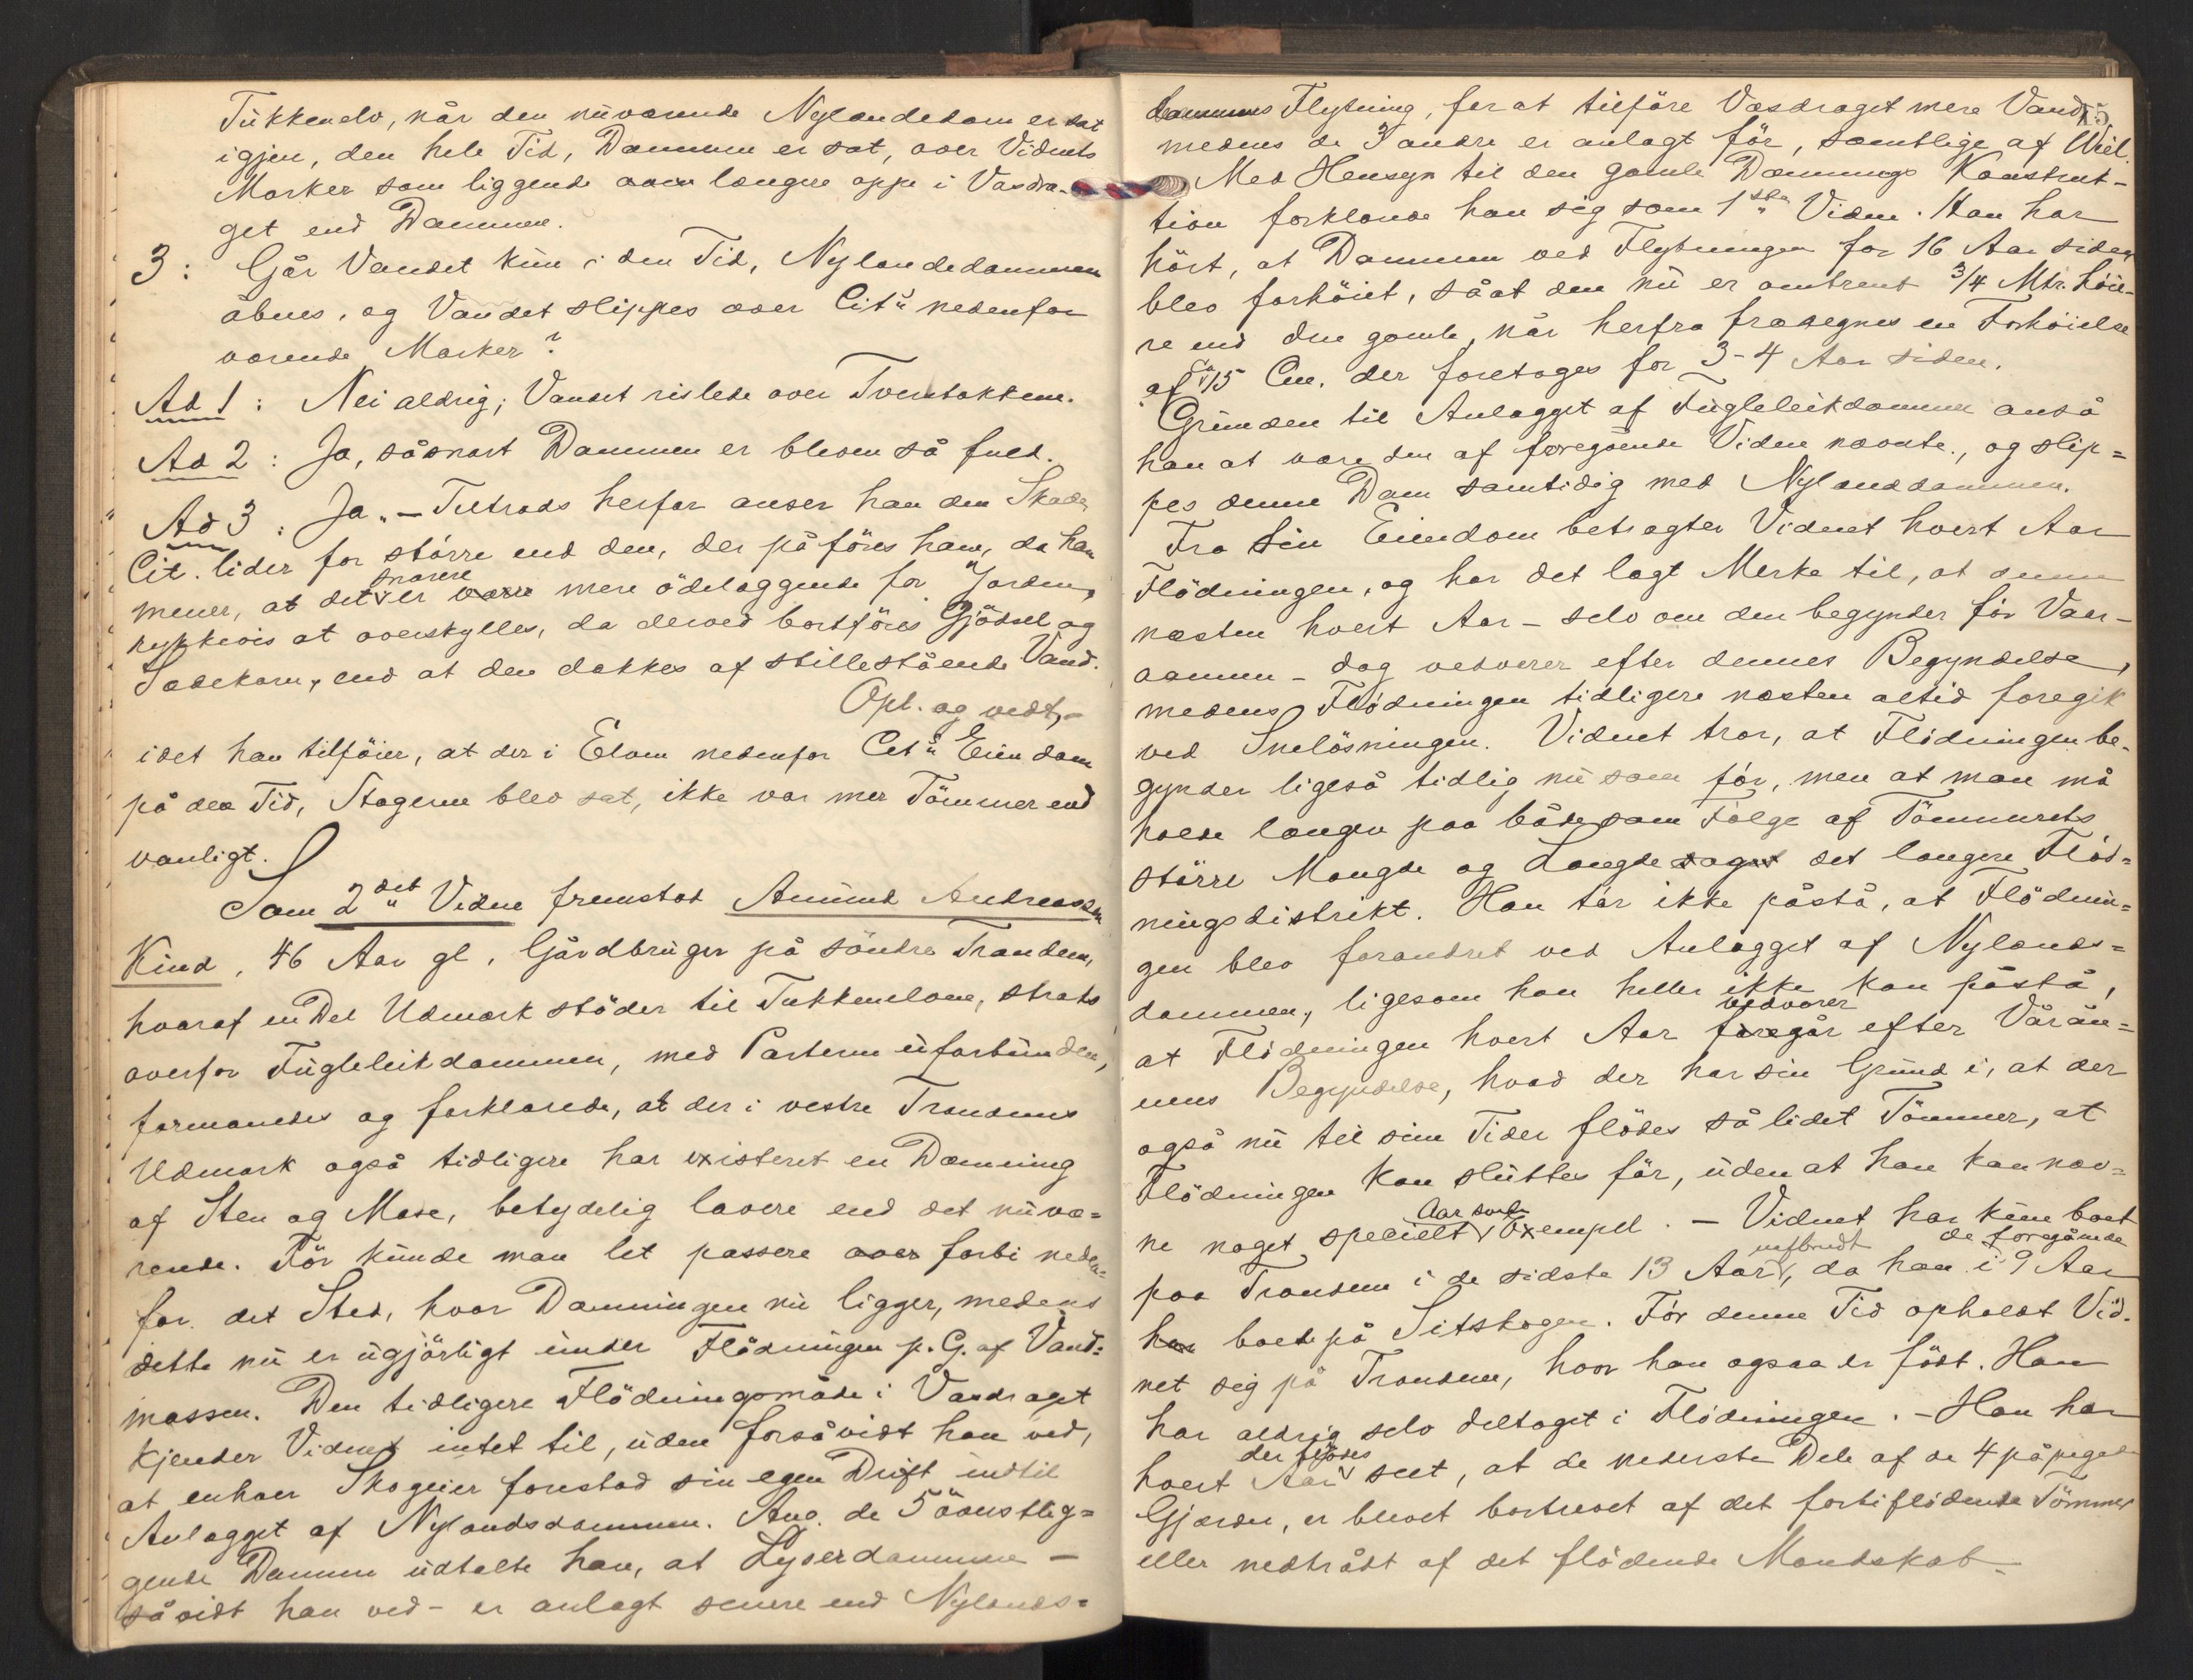 Tukkenelv, når den nuværende Nylandsdam er sat
igjen, den hele Tid, Dammen er sat, over Vidnets
Marker som liggende længere oppe i Vasdra-
get end Dammen.
3: Går Vandet kun i den Tid, Nylandsdammen
åbnes, og Vandet slippes over Cit.s nedenfor
værende Marker?
Ad 1: Nei aldrig; Vandet rislede over Tverstokkene.
Ad 2: Ja, såsnart Dammen er bleven så fuld.
Ad 3: Ja. – Tiltrods herfor anser han den Skade,
Cit. lider for større end den, der påføres ham, da han
mener, at det snarere er mere ödelæggende for Jorden,
rykkevis at overskylles, da derved bortföres Gjödsel og
Sædekorn, end at den dækkes af stillestående Vand.
Opl. og vedt.,
idet han tilföier, at der i Elven nedenfor Cit.s Eiendom
på den Tid, Stagerne blev sat, ikke var mer Tömmer end
vanligt.
Som 2det Vidne fremstod Amund Andreassen
Kind, 46 Aar gl., Gårdbruger på söndre Trandem,
hvoraf en Del Udmark stöder til Tukkenelven, straks
overfor Fugleleikdammen, med Parterne uforbunden,
formanedes og forklarede, at der i vestre Trandems
Udmark også tidligere har existeret en Dæmning
af Sten og Mose, betydelig lavere end det nuvæ=
rende. För kunde man let passere over forbi neden=
for det Sted, hvor Dæmningen nu ligger, medens
dette nu er ugjörligt under Flödningen p. G. af Vand=
massen. Den tidligere Flödningsmåde i Vasdraget
kjender Vidnet intet til, uden forsåvidt han ved,
at enhver Skogeier forestod sin egen Drift indtil
Anlægget af Nylandsdammen. Ang. de 5 överstlig=
gende Damme udtalte han, at Lyserdammen –
såvidt han ved – er anlagt senere end Nylands=
dammens Flytning, for at tilföre Vasdraget mere Vand, 5.
medens de 3 andre er anlagt för, samtlige af Wiel.
Med Hensyn til den gamle Dæmnings Konstruk-
tion forklarede han sig som 1ste Vidne. Han har
hört, at Dammen ved Flytningen for 16 Aar siden
blev forhöiet, såat den nu er omtrent 3/4 Mtr. höie-
re end den gamle, når herfra fraregnes en Forhöielse
af ca 15 Cm. der foretoges for 3-4 Aar siden.
Grunden til Anlægget af Fugleleikdammen anså
han at være den af foregående Vidne nævnte, og slip=
pes denne Dam samtidig med Nylanddammen.
Fra sin Eiendom betragter Vidnet hvert Aar
Flödningen, og har det lagt Merke til, at denne
næsten hvert Aar – selv om den begynder för Vaar-
aannen – dog vedvarer efter dennes Begyndelse,
medens Flödningen tidligere næsten altid foregik
ved Snelösningen. Vidnet tror, at Flödningen be-
gynder ligeså tidlig nu som för, men at man må
holde længere paa både som Fölge af Tömmerets
större Mængde og Længde det længere Flöd=
ningsdistrikt. Han tör ikke påstå, at Flödnin=
gen blev forandret ved Anlægget af Nylands=
dammen, ligesom han heller ikke kan påstå,
at Flödningen hvert Aar vedvarer efter Vårån=
nens Begyndelse, hvad der har sin Grund i, at der
også nu til sine Tider flödes så lidet Tömmer, at
Flödningen kan sluttes för, uden at han kan næv=
ne noget specielt Aar som Exempel. – Vidnet har kun boet
paa Trandem i de sidste 13 Aar uafbrudt, da han i de foregående 9 Aar
har boet på Sitskogen. För denne Tid opholdt Vid-
net sig på Trandem, hvor han ogsaa er född. Han
har aldrig selv deltaget i Flödningen. – Han har
hvert Aar der flödes seet, at de nederste Dele af de 4 påpegede
Gjærder, er blevet bortrevet af det forbiflödende Tömmer
eller nedtrådt af det flödende Mandskab